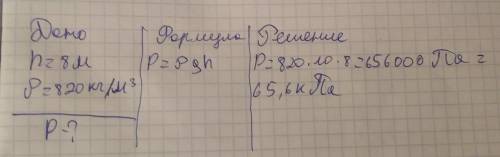 Дано
h=8м
P=820кг/м³
P-?
Формула
P=Pgh
Решение
P=820·10·8=656000 Па =
65,6кПа